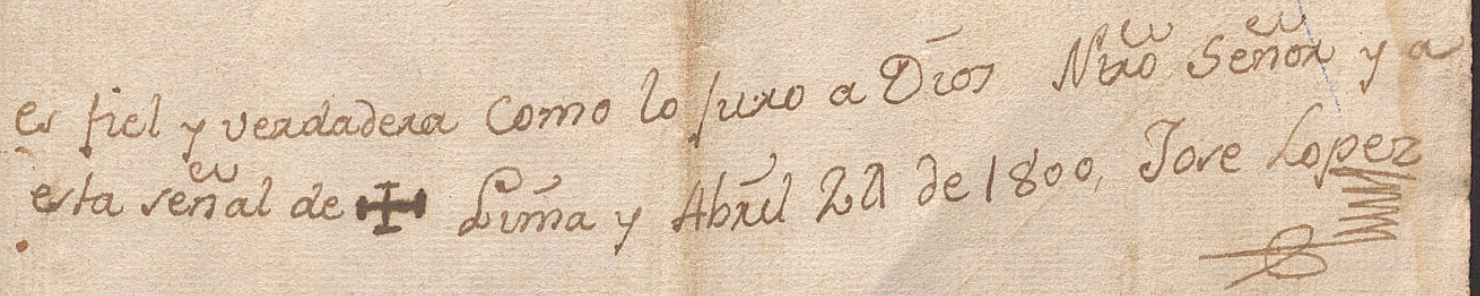 es fiel y verdadera Como lo juro a Dios Ntrõ Señor y a
esta señal de ✝ Lima y Abril 21 de 1800, Jose Lopez